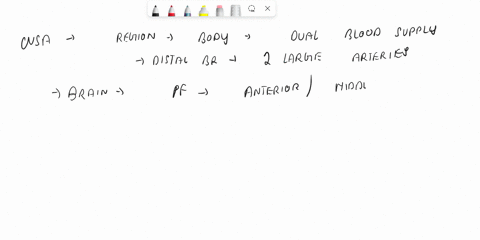 CNSA → REGION → BODY → DUAL BLOOD SUPPLY
→ DISTAL BR → 2 LARGE ARTERIES
→ BRAIN → PF → ANTERIOR / MIDDL